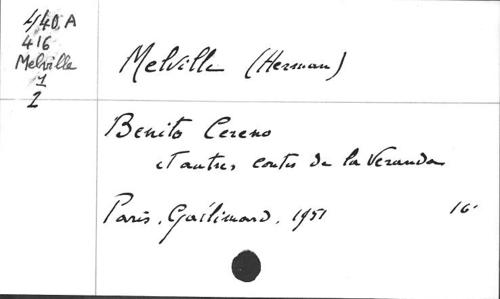 440.A
416
Melville
1
2
Melville (Herman)
Benito Cereno
et autres contes de la Veranda
Paris, Gallimard, 1951 16°